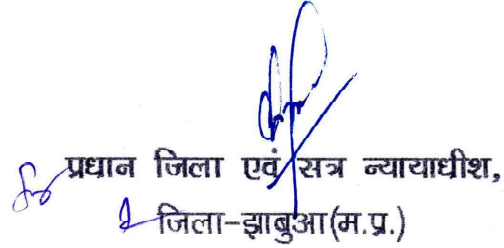 प्रधान जिला एवं सत्र न्यायाधीश,
जिला-झाबुआ(म.प्र.)